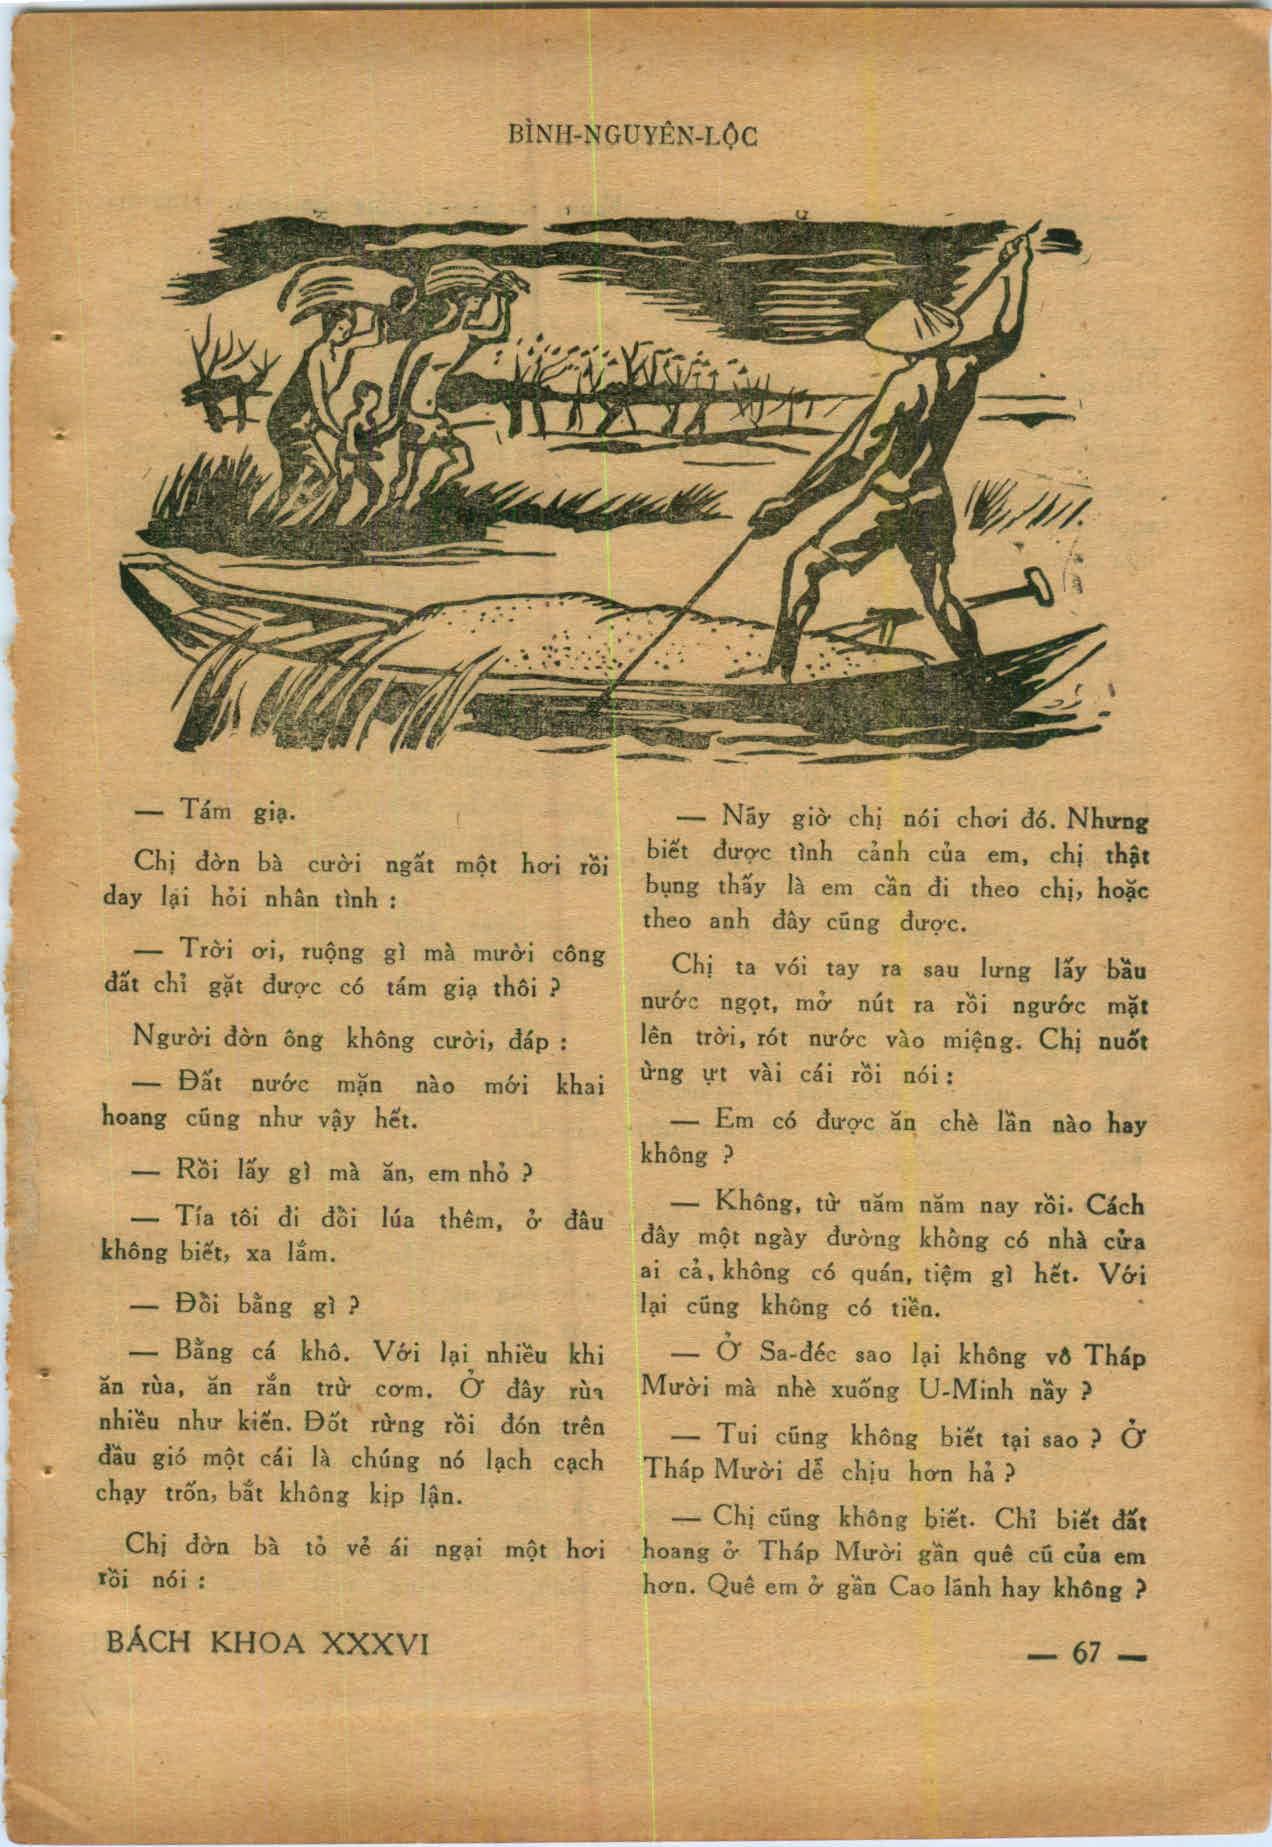 BÌNH-NGUYÊN-LỘC
— Tám giạ.
Chị đờn bà cười ngất một hơi rồi
day lại hỏi nhân tình :
— Trời ơi, ruộng gì mà mười công
đất chỉ gặt được có tám giạ thôi ?
Người đờn ông không cười, đáp :
— Đất nước mặn nào mới khai
hoang cũng như vậy hết.
— Rồi lấy gì mà ăn, em nhỏ ?
— Tía tôi đi đổi lúa thêm, ở đâu
không biết, xa lắm.
— Đổi bằng gì ?
— Bằng cá khô. Với lại nhiều khi
ăn rùa, ăn rắn trừ cơm. Ở đây rùa
nhiều như kiến. Đốt rừng rồi đón trên
đầu gió một cái là chúng nó lạch cạch
chạy trốn, bắt không kịp lận.
Chị đờn bà tỏ vẻ ái ngại một hơi
rồi nói :
— Nãy giờ chị nói chơi đó. Nhưng
biết được tình cảnh của em, chị thật
bụng thấy là em cần đi theo chị, hoặc
theo anh đây cũng được.
Chị ta vói tay ra sau lưng lấy bầu
nước ngọt, mở nút ra rồi ngước mặt
lên trời, rót nước vào miệng. Chị nuốt
ừng ực vài cái rồi nói :
— Em có được ăn chè lần nào hay
không ?
— Không, từ năm năm nay rồi. Cách
đây một ngày đường không có nhà cửa
ai cả, không có quán, tiệm gì hết. Với
lại cũng không có tiền.
— Ở Sa-đéc sao lại không vô Tháp
Mười mà nhè xuống U-Minh nầy ?
— Tui cũng không biết tại sao ? Ở
Tháp Mười dễ chịu hơn hả ?
— Chị cũng không biết. Chỉ biết đất
hoang ở Tháp Mười gần quê cũ của em
hơn. Quê em ở gần Cao lãnh hay không ?
BÁCH KHOA XXXVI
— 67 —